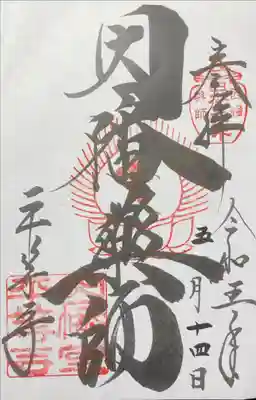 奉拝
令和五年
五月十四日
因幡薬師
平等寺